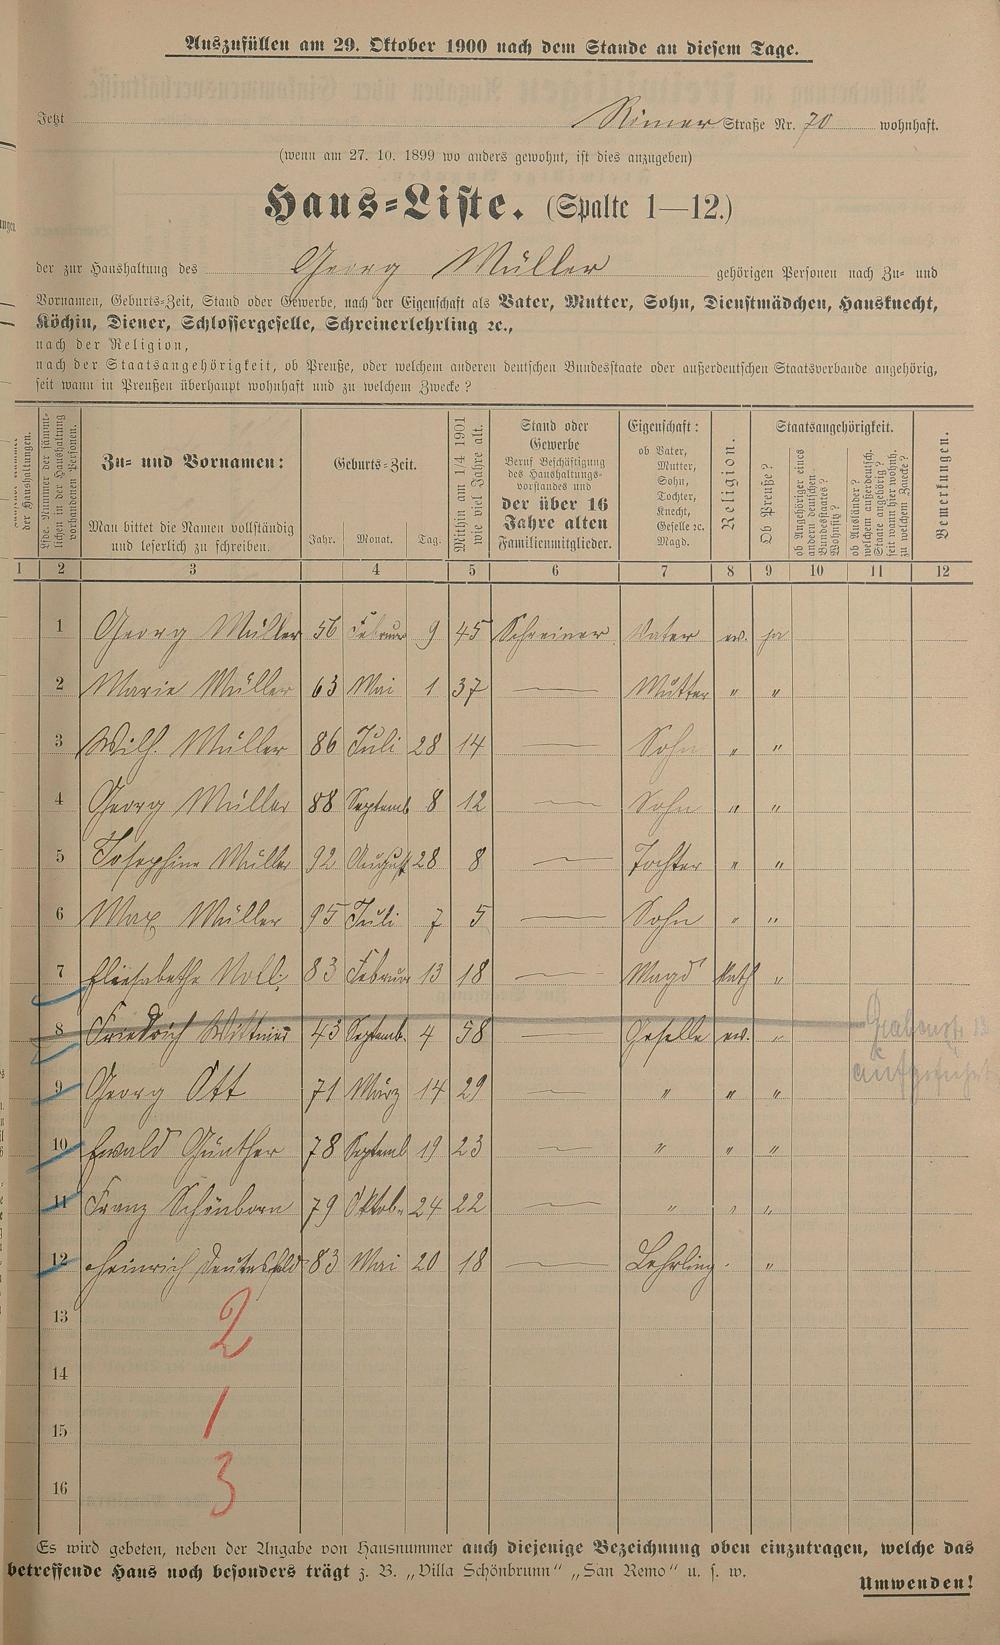 Auszufüllen am 29. Oktober 1900 nach dem Stande an diesem Tage.
Jetzt Straße Nr. 70 wohnhaft.
(wenn am 27. 10. 1899 wo anders gewohnt, ist dies anzugeben)
Haus-Liste. (Spalte 1—12.)
der zur Haushaltung des Georg Müller gehörigen Personen nach Zu- und
Vornamen, Geburts-Zeit, Stand oder Gewerbe, nach der Eigenschaft als Vater, Mutter, Sohn, Dienstmädchen, Hausknecht,
Köchin, Diener, Schlossergeselle, Schreinerlehrling ꝛc.,
nach der Religion,
nach der Staatsangehörigkeit, ob Preuße, oder welchem anderen deutschen Bundesstaate oder außerdeutschen Staatsverbande angehörig,
seit wann in Preußen überhaupt wohnhaft und zu welchem Zwecke?
der Haushaltungen.
Lfde. Nummer der sämmt-
lichen in der Haushaltung
vorhandenen Personen.
Zu- und Vornamen:
Man bittet die Namen vollständig
und leserlich zu schreiben.
Geburts-Zeit.
Jahr. Monat. Tag.
Mithin am 1/4 1901
wie viel Jahre alt.
Stand oder
Gewerbe
Beruf Beschäftigung
des Haushaltungs-
vorstandes und
der über 16
Jahre alten
Familienmitglieder.
Eigenschaft:
ob Vater,
Mutter,
Sohn,
Tochter,
Knecht,
Geselle ꝛc.
Magd.
Religion.
Staatsangehörigkeit.
Ob Preuße?
ob Angehöriger eines
andern deutschen
Bundesstaates?
Wohnsitz?
ob Ausländer?
welchem außerdeutsch.
Staate angehörig?
seit wann hier wohnh.
zu welchem Zwecke?
Bemerkungen.
1 2 3 4 5 6 7 8 9 10 11 12
1 Georg Müller 56 Februar 9 45 Schreiner Vater ev. ja
2 Marie Müller 63 Mai 1 37 — Mutter " "
3 Wilh. Müller 86 Juli 28 14 — Sohn " "
4 Georg Müller 88 Septemb 8 12 — Sohn " "
5 Josephine Müller 92 August 28 8 — Tochter " "
6 Max Müller 95 Juli 7 5 — Sohn " "
7 Elisabethe Noll 83 Februar 13 18 — Magd Kath "
8 Friedrich 43 Septemb. 4 58 — Geselle ev. "
aufgeführt
9 Georg Ott 71 März 14 29 — " " "
10 Ewald Günther 78 Septemb 19 23 — " " "
11 Franz Schönborn 79 Oktob. 24 22 — " " "
12 Heinrich 83 Mai 20 18 — Lehrling " "
13 2
14
15 1
16 3
Es wird gebeten, neben der Angabe von Hausnummer auch diejenige Bezeichnung oben einzutragen, welche das
betreffende Haus noch besonders trägt z. B. „Villa Schönbrunn" „San Remo" u. s. w.
Umwenden!